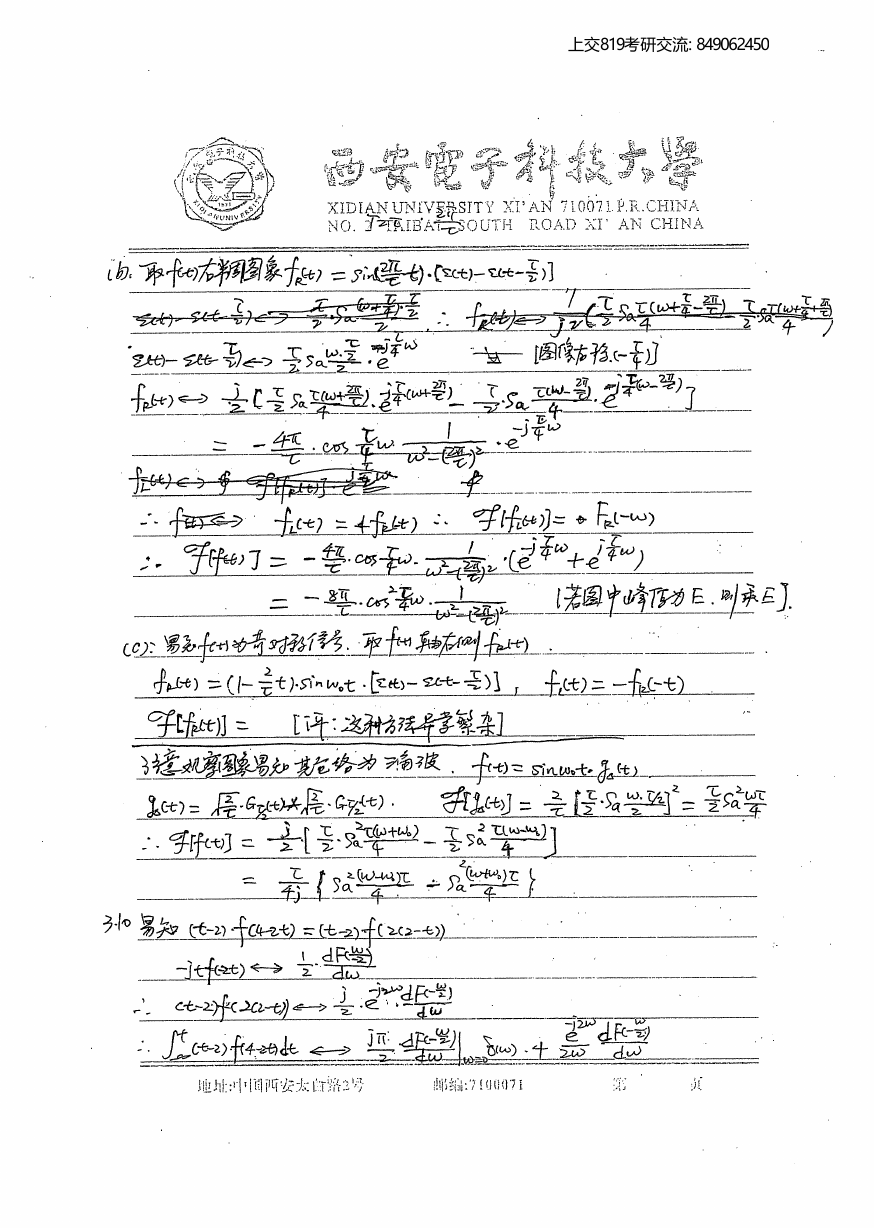 上交819考研交流: 849062450
西安電子科技大學
XIDIAN UNIVERSITY XI'AN 710071.P.R.CHINA
NO. 2 TAIBAI SOUTH ROAD XI' AN CHINA
(b). 取f(t)右半周图象 f_R(t) = sin(2π/τ t)·[ε(t)-ε(t-τ/2)]
ε(t)-ε(t-τ/2) ↔ τ/2 Sa(ω·τ/2 /2)·e^{-jτ/4 ω} [图像右移(-τ/4)]
f_R(t) ↔ j/2 [τ/2 Sa τ(ω+2π/τ)/4 · e^{-jτ/4(ω+2π/τ)} - τ/2·Sa τ(ω-2π/τ)/4 · e^{-jτ/4(ω-2π/τ)}]
= -4π/τ · cos τ/4 ω · 1/(ω²-(2π/τ)²) · e^{-jτ/4 ω}
∴ f_L(t) = f_R(-t) ∴ ℱ[f_L(t)] = F_R(-ω)
∴ ℱ[f(t)] = -4π/τ · cos τ/4 ω · 1/(ω²-(2π/τ)²) · (e^{-jτ/4 ω} + e^{jτ/4 ω})
= -8π/τ · cos² τ/4 ω · 1/(ω²-(2π/τ)²) [若图中峰值为E, 则乘E].
(c): 易知f(t)为奇对称信号. 取f(t)轴右侧f_R(t).
f_R(t) = (1-2/τ t)·sinω₀t·[ε(t)-ε(t-τ/2)], f_L(t) = -f_R(-t)
ℱ[f_R(t)] = [评: 这种方法异常繁杂]
注意观察图象易知其包络为三角波. f(t) = sinω₀t·g_Δ(t)
g_Δ(t) = √(2/τ)·G_{τ/2}(t) * √(2/τ)·G_{τ/2}(t). ℱ[g_Δ(t)] = 2/τ [τ/2·Sa ω·τ/2 /2]² = τ/2 Sa² ωτ/4
∴ ℱ[f(t)] = j/2 [τ/2·Sa² τ(ω+ω₀)/4 - τ/2 Sa² τ(ω-ω₀)/4]
= τ/4j {Sa² (ω-ω₀)τ/4 - Sa² (ω+ω₀)τ/4}
3.10 易知 (t-2)·f(4-2t) = (t-2)·f(2(2-t))
-jtf(-2t) ↔ 1/2 · dF(-ω/2)/dω
∴ (t-2)f(2(2-t)) ↔ j/2 · e^{-j2ω} · dF(-ω/2)/dω
∴ ∫_{-∞}^{t} (t-2)f(4-2t)dt ↔ jπ/2 · dF(-ω/2)/dω |_{ω=0} δ(ω) + e^{-j2ω}/2ω dF(-ω/2)/dω
地址:中国西安太白路2号 邮编:7100071 第 页